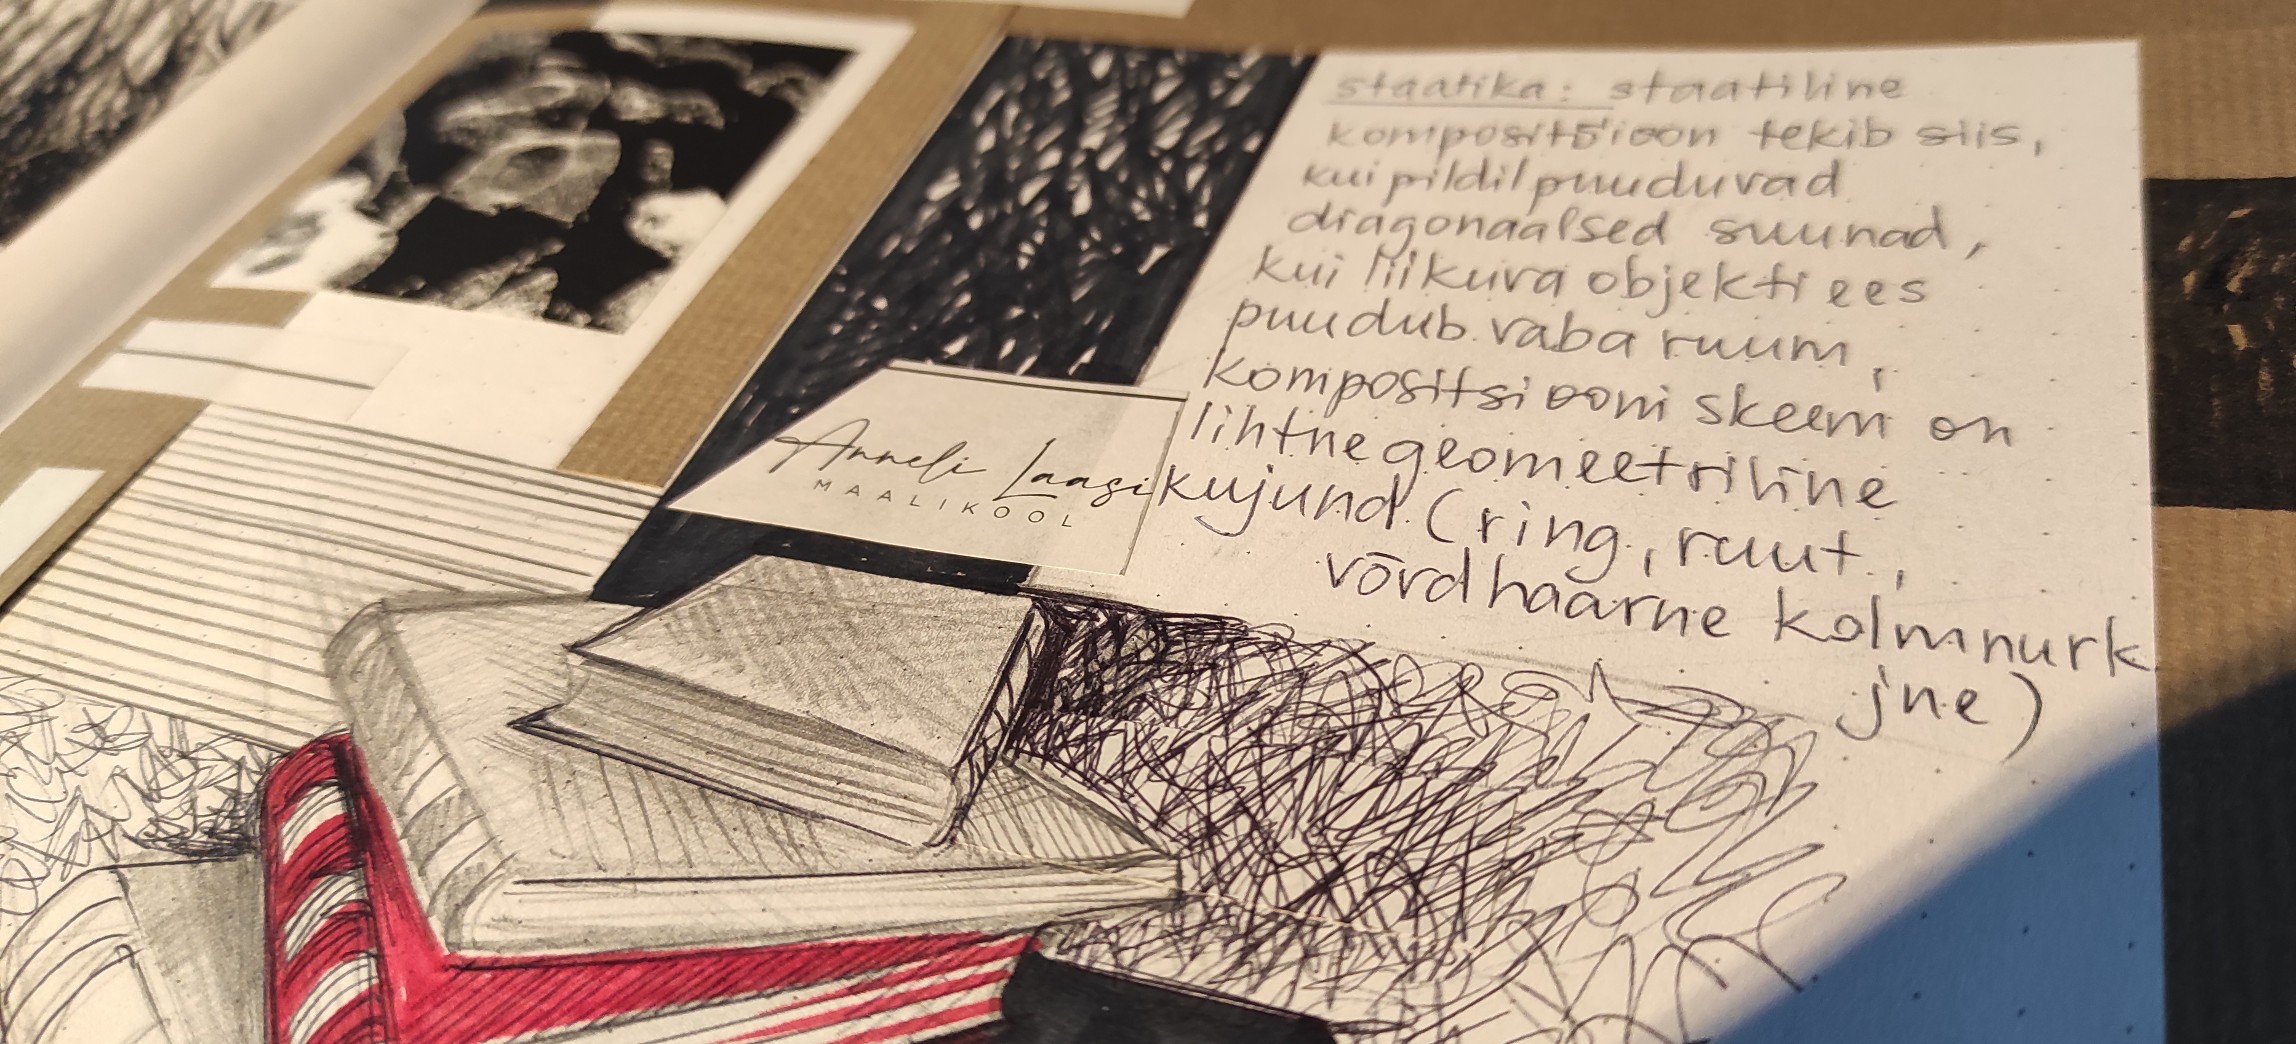 staatika: staatiline
kompositsioon tekib siis,
kui pildil puuduvad
diagonaalsed suunad,
kui liikuva objekti ees
puudub vaba ruum,
kompositsiooni skeem on
lihtne geomeetriline
kujund (ring, ruut,
võrdhaarne kolmnurk
jne)
Anneli Laasi
MAALIKOOL